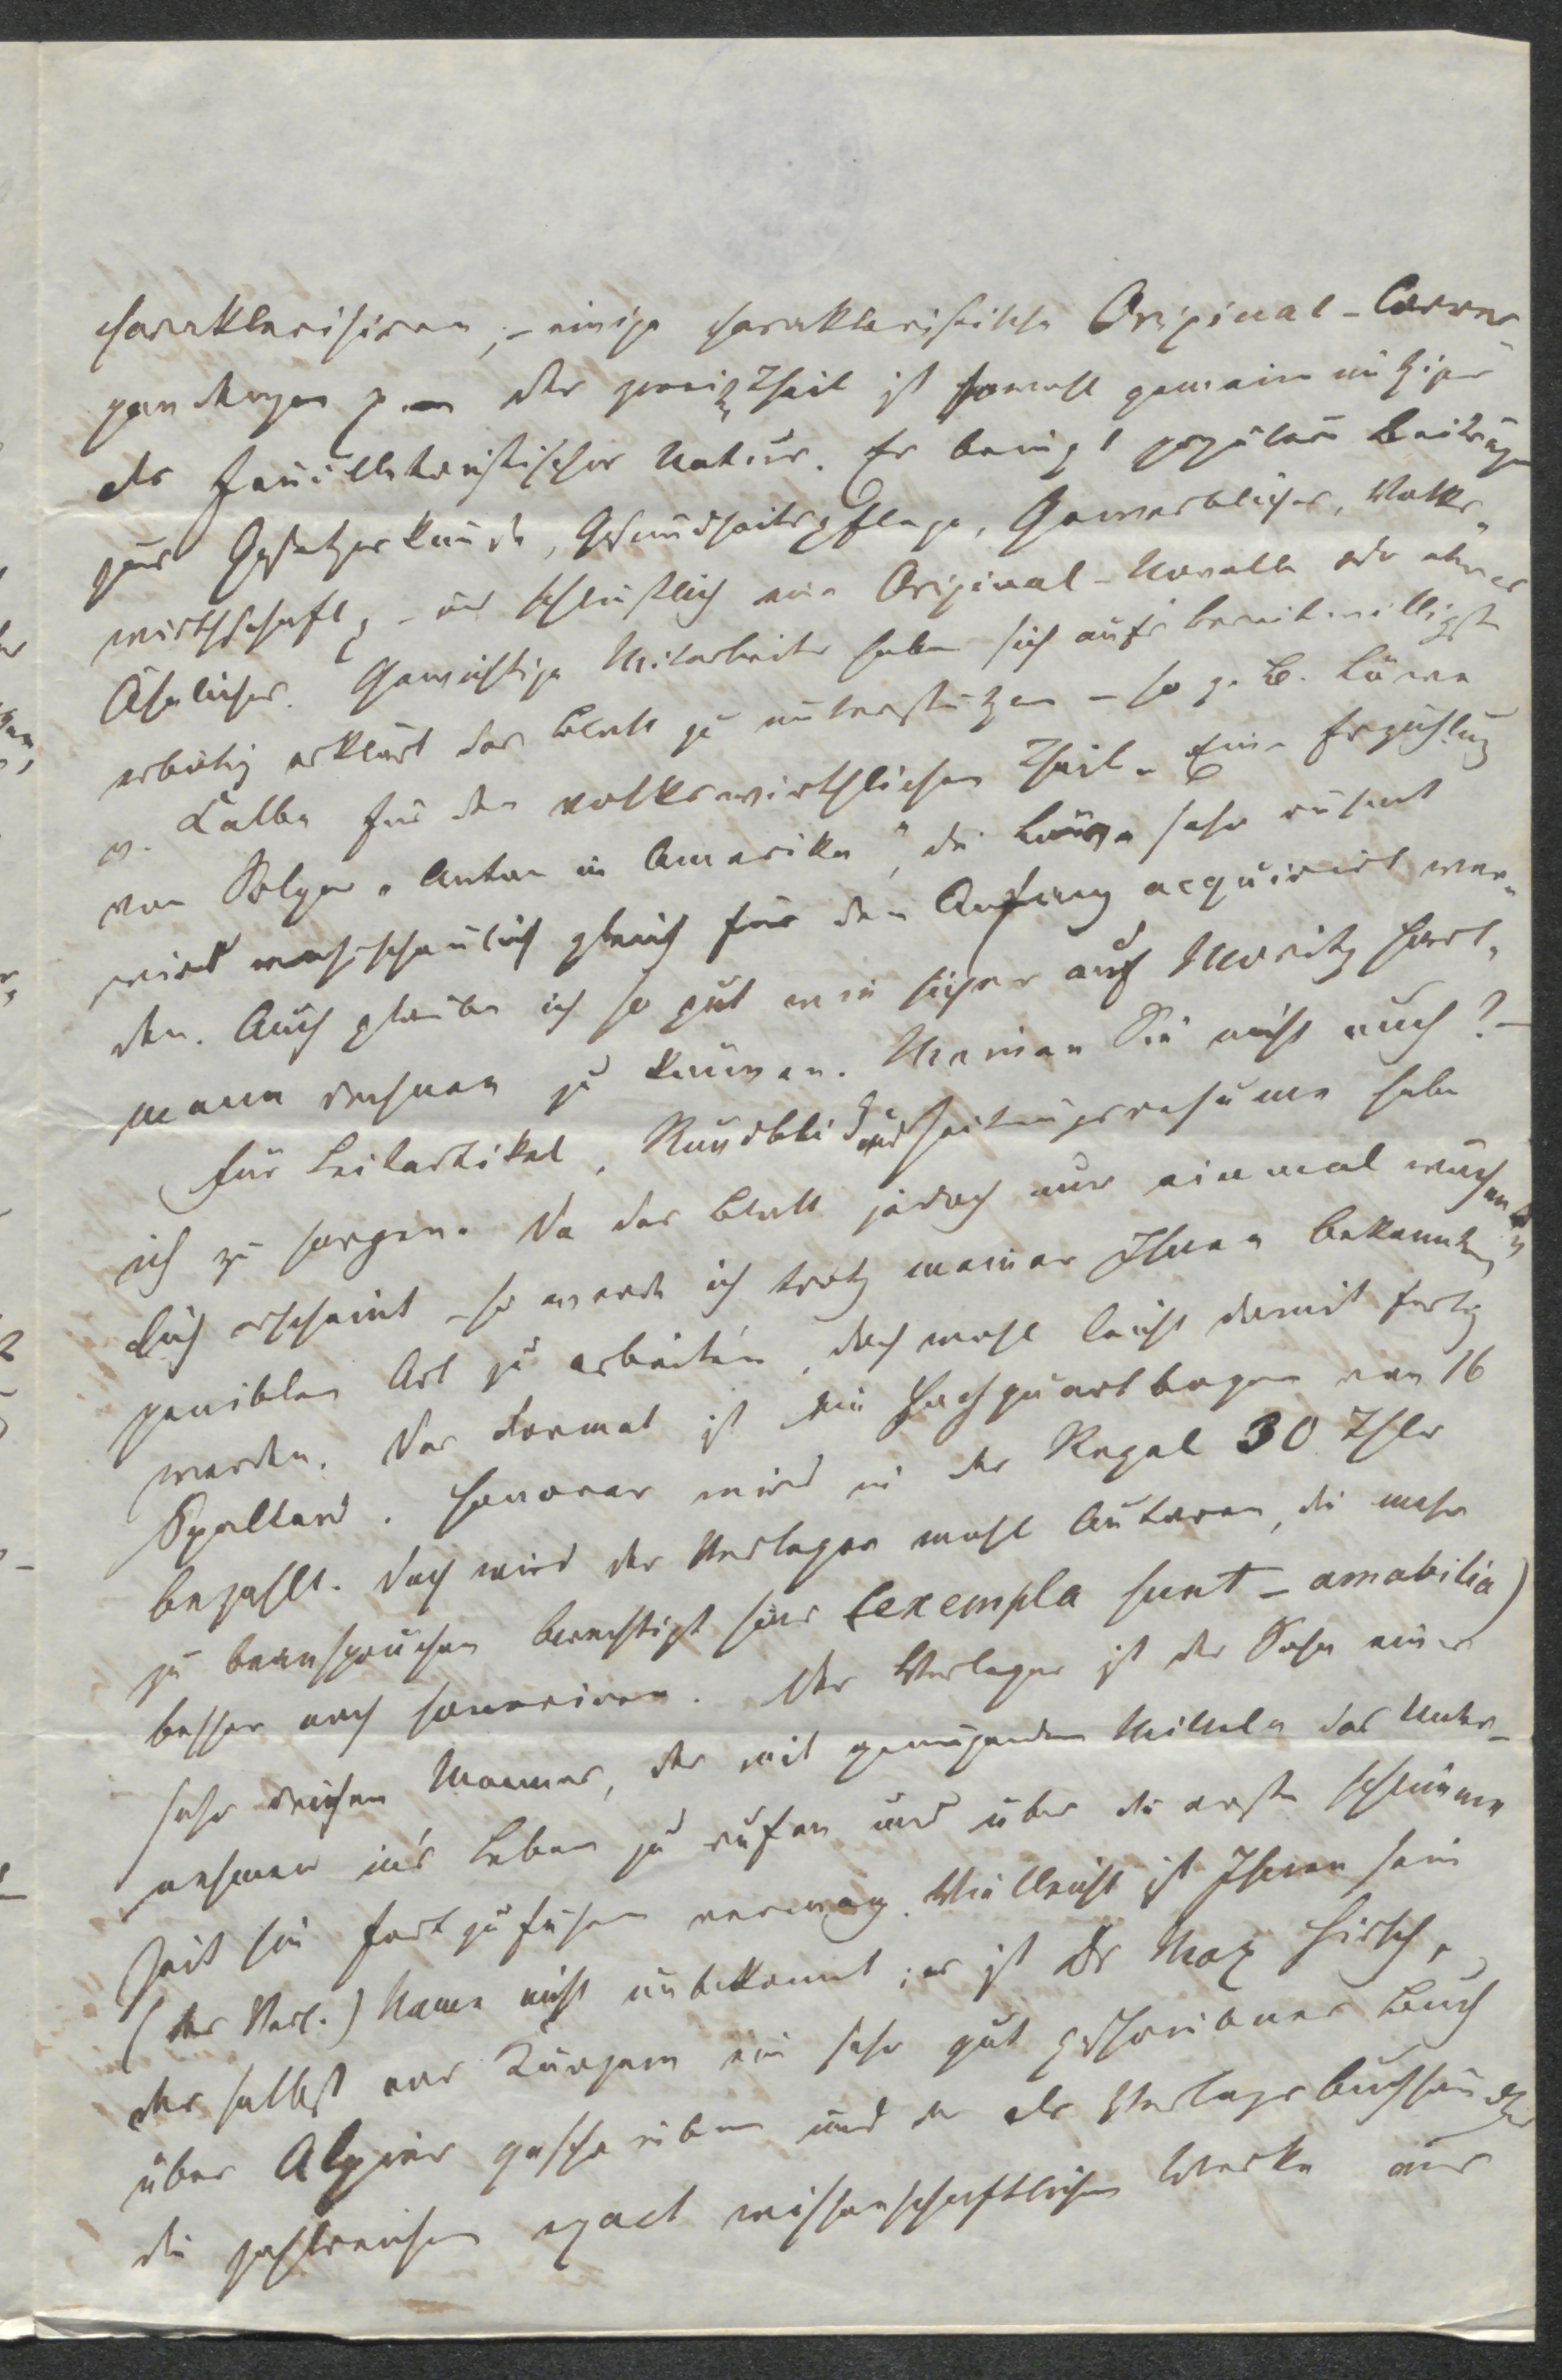 charakterisiren, – einige charakteristische Original-Corres
pondenzen p. – Der zweite Theil ist sowohl gemeinnütziger
als feuilletonistischer Natur. Er bringt populäre Beiträge
zur Gesetzeskunde, Gesundheitspflege, Gewerbliches, Volks-
wirthschaft, – und schließlich eine Original-Novelle oder etwas
Ähnliches. Gewichtige Mitarbeiter haben sich aufs bereitwilligste
erbötig erklärt das Blatt zu unterstützen – so z. B. Löwe
v. Calbe für den volkswirthlichen Theil. Eine Erzählung
von Solger „Anton in Amerika", die Löwe sehr rühmt
wird wahrscheinlich gleich für den Anfang acquirirt wer-
den. Auch glaube ich so gut wie sicher auf Moritz Hart-
mann rechnen zu können. Meinen Sie nicht auch? –
Für Leitartikel, Rundblick und Zeitungsresume habe
ich zu sorgen. Da das Blatt jedoch nur einmal wöchent-
lich erscheint – so werde ich trotz meiner Ihnen bekannten
peniblen Art zu arbeiten, doch wohl leicht damit fertig
werden. Das Format ist ein Hochquartbogen von 16
Spalten. Honorar wird in der Regel 30 Thlr
bezahlt. Doch wird der Verleger wohl Autoren, die mehr
zu beanspruchen berechtigt sind (exempla sunt – amabilia)
besser auch honoriren. Der Verleger ist der Sohn eines
sehr reichen Mannes, der mit genügenden Mitteln das Unter-
nehmen in's Leben zu rufen und über die erste schlimme
Zeit hin fortzuführen vermag. Vielleicht ist Ihnen sein
(des Verl.) Name nicht unbekannt; es ist Dr Max Hirsch,
der selbst vor Kurzem ein sehr gut geschriebnes Buch
über Algier geschrieben und der als Verlagsbuchhändler
die zahlreichen exact wissenschaftlichen Werke aus